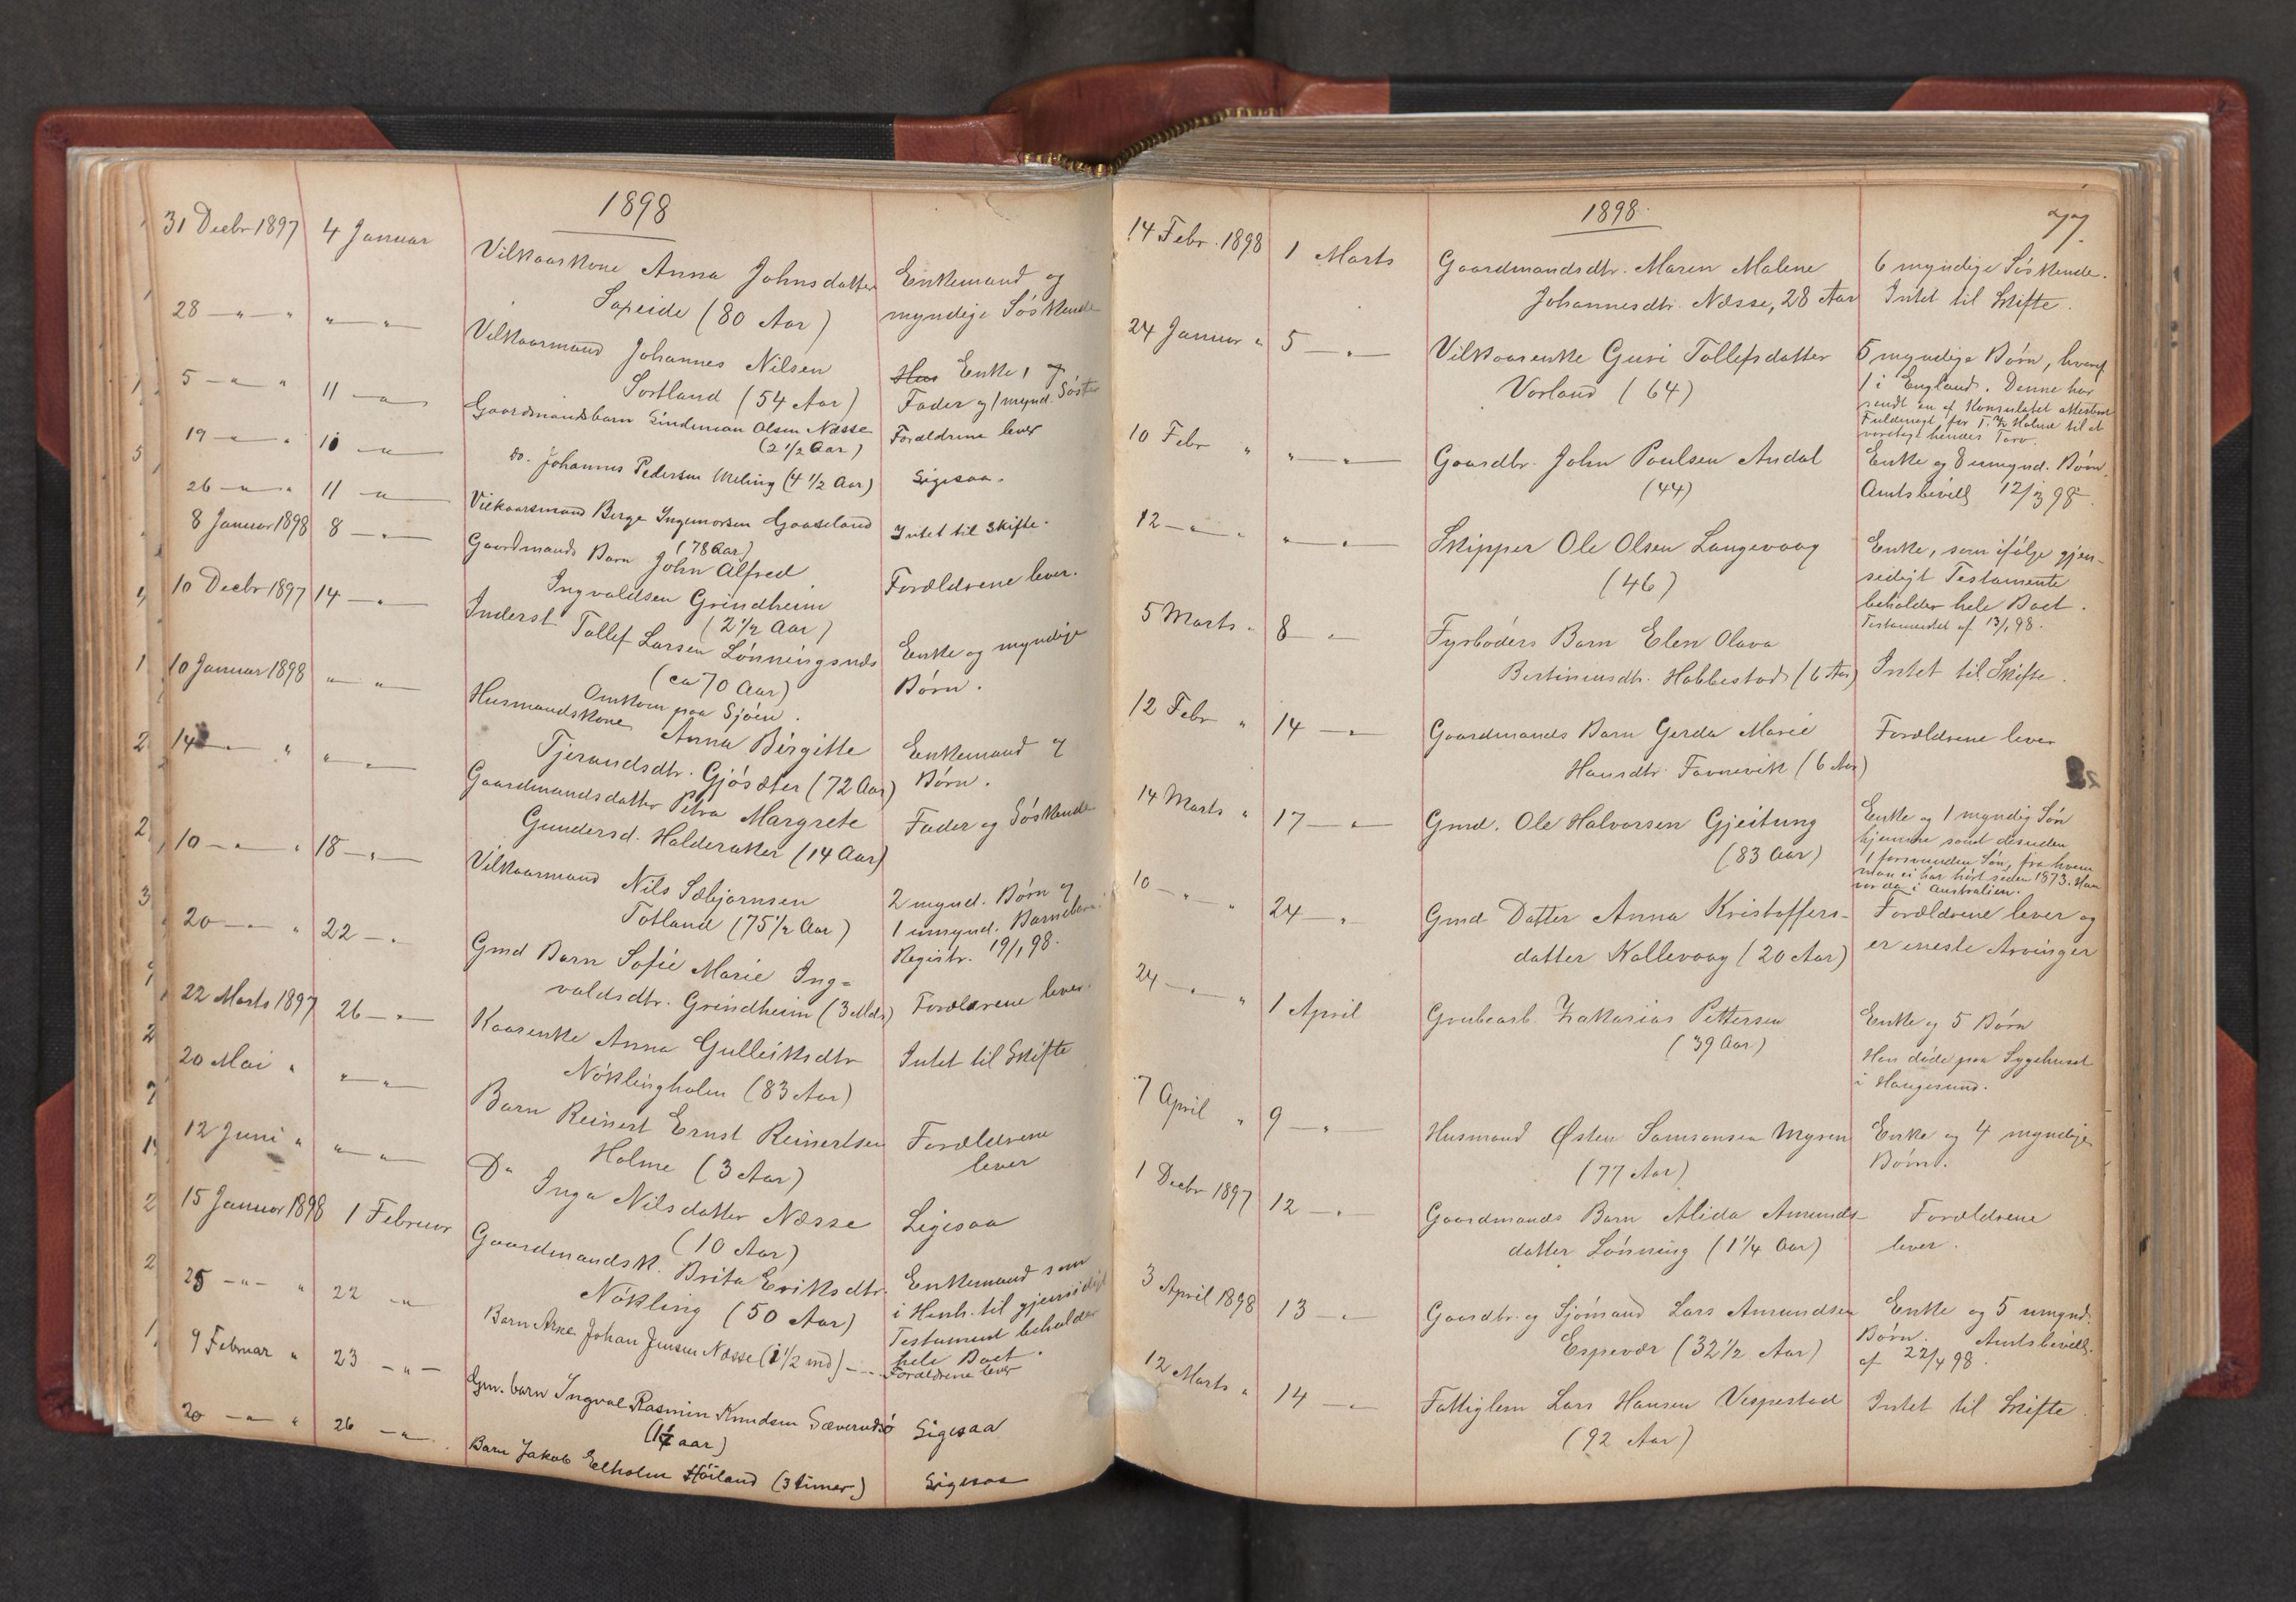 1898
31 Decbr 1897 4 Januar Vilkaarskone Anna Johnsdatter Enkemand og
Saxeide (80 Aar) myndige Søskende
28 — " — " " — " — Vilkaarmand Johannes Nilsen Enke, og
Sortland (54 Aar) Fader og 1 mynd. Søster
5 — " — " 11 — " — Gaardmandsbarn Lindeman Olsen Næsse Forældrene lever
(2 1/2 Aar)
19 — " — " 10 — " — do. Johannes Pedersen Meling (4 1/2 Aar) Ligesaa.
26 — " — " 11 — " — Vilkaarsmand Berge Ingemorsen Gaaseland Intet til Skifte.
(78 Aar)
8 Januar 1898 8 — " — Gaardmands Barn John Alfred
Ingvaldsen Grindheim Forældrene lever.
(2 1/2 Aar)
10 Decbr 1897 14 — " — Inderst Tollef Larsen Lønningsnæs Enke og myndige
(ca 70 Aar) Børn.
Omkom paa Sjøen.
10 Januar 1898 " — " — Husmandskone Anna Birgitte Enkemand og
Tjerandsdtr. Gjøsæter (72 Aar) Børn.
14 — " — " " — " — Gaardmandsdatter Petra Margrete Fader og Søskende
Gundersd. Halderaker (14 Aar)
10 — " — " 18 — " — Vilkaarmand Nils Sæbjørnsen 2 mynd. Børn og
Totland (75 1/2 Aar) 1 umynd. Barnebarn.
Registr. 19/1 98.
20 — " — " 22 — " Gmd Barn Sofie Marie Ing=
valdsdtr. Grindheim (3 Mdr) Forældrene lever.
22 Marts 1897 26 — " — Kaarenke Anna Gulleiksdtr Intet til Skifte
Nøklingholm (83 Aar)
20 Mai " " — " — Barn Reinert Ernst Reinertsen Forældrene
Holme (3 Aar) lever
12 Juni " " — " — Do Inga Nilsdatter Næsse Ligesaa
(10 Aar)
15 Januar 1898 1 Februar Gaardmandsk. Brita Eriksdtr. Enkemand som
Nøkling (50 Aar) i Henh. til gjensidigt
Testament beholder
hele Boet.
25 — " — " 22 — " Barn Arne Johan Jensen Næsse (1 1/2 md) — Forældrene lever
9 Februar " 23 — " — Gm. barn Ingval Rasmin Knudsen Sæverudsø Ligesaa
aar)
20 — " — " 26 — " — Barn Jakob Elholm Høiland (3 timer.) Ligesaa
1898.
14 Febr. 1898 1 Marts Gaardmandsdtr. Maren Malene 6 myndige Søskende.
Johannesdtr. Næsse, 28 Aar Intet til Skifte.
24 Januar " 5 — " — Vilkaarenke Guri Tollefsdatter 5 myndige Børn, hvoraf
Vorland (64) 1 i England. Denne har
sendt en af Konsulatet attesteret
Fuldmagt for T. Holme til at
varetage hendes Tarv.
10 Febr " " — " — Gaardbr. John Poulsen Andal Enke og 8 umynd. Børn.
(44) Amtsbevilg 12/3 98.
12 — " — " " — " — Skipper Ole Olsen Langevaag Enke, som ifølge gjen-
(46) sidigt Testamente
beholder hele Boet.
Testamentet af 13/1 98.
5 Marts " 8 — " Fyrbøders Barn Elen Olava
Bertineusdtr. Hobbestad (6 Aar) Intet til Skifte.
12 Febr " 14 — " — Gaardmands Barn Gerda Marie Forældrene lever
Hansdtr. Favnevik (6 Aar)
14 Marts " 17 — " — Gmd. Ole Halvorsen Gjeitung Enke og 1 myndig Søn
(83 Aar) hjemme samt desuden
1 forsvunden Søn, fra hvem
man ei har hørt siden 1873. Han
var da i Australien.
10 — " — " 24 — " Gmd Datter Anna Kristoffers- Forældrene lever og
datter Kallevaag (20 Aar) er eneste Arvinger
24 — " — " 1 April Grubearb. Zakarias Pettersen Enke og 5 Børn
(39 Aar) Han døde paa Sygehuset
i Haugesund.
7 April " 9 — " — Husmand Østen Samsonsen Myren Enke og 4 myndige
(77 Aar) Børn.
1 Decbr 1897 12 — " — Gaardmands Barn Alida Amunds- Forældrene
datter Lønning (1 1/4 Aar) lever.
3 April 1898 13 — " Gaardbr. og Sjømand Lars Amundsen Enke og 5 umynd.
Espevær (32 1/2 Aar) Børn. Amtsbevilg.
af 22/4 98.
12 Marts " 14 — " Fattiglem Lars Hansen Vespestad Intet til Skifte.
(92 Aar)